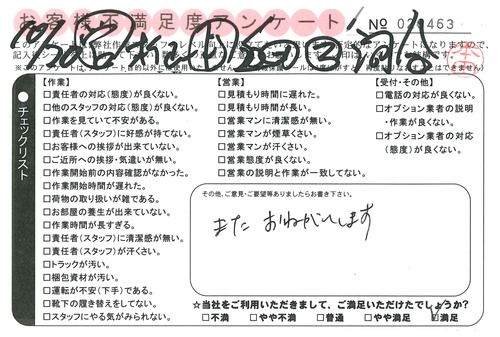 お客様不満足度アンケート
チェックリスト
【作業】
□責任者の対応(態度)が良くない。
□他のスタッフの対応(態度)が良くない。
□作業を見ていて不安がある。
□責任者(スタッフ)に好感が持てない。
□お客様への挨拶が出来ていない。
□ご近所への挨拶・気遣いが無い。
□作業開始前の内容確認がなかった。
□作業開始時間が遅れた。
□荷物の取り扱いが雑である。
□お部屋の養生が出来ていない。
□作業時間が長すぎる。
□責任者(スタッフ)に清潔感が無い。
□責任者(スタッフ)が汗くさい。
□トラックが汚い。
□梱包資材が汚い。
□運転が不安(下手)である。
□靴下の履き替えをしてない。
□スタッフにやる気がみられない。
【営業】
□見積もり時間に遅れた。
□見積もり時間が長い。
□営業マンに清潔感が無い。
□営業マンが煙草くさい。
□営業マンが汗くさい。
□営業態度が良くない。
□営業の説明と作業が一致してない。
【受付・その他】
□電話の対応が良くない。
□オプション業者の説明
・作業が良くない。
□オプション業者の対応
(態度)が良くない。
その他、ご意見・ご要望等ありましたらお書き下さい。
また おねがいします
☆当社をご利用いただきまして、ご満足いただけたでしょうか?
□不満 □やや不満 □普通 □やや満足 □満足